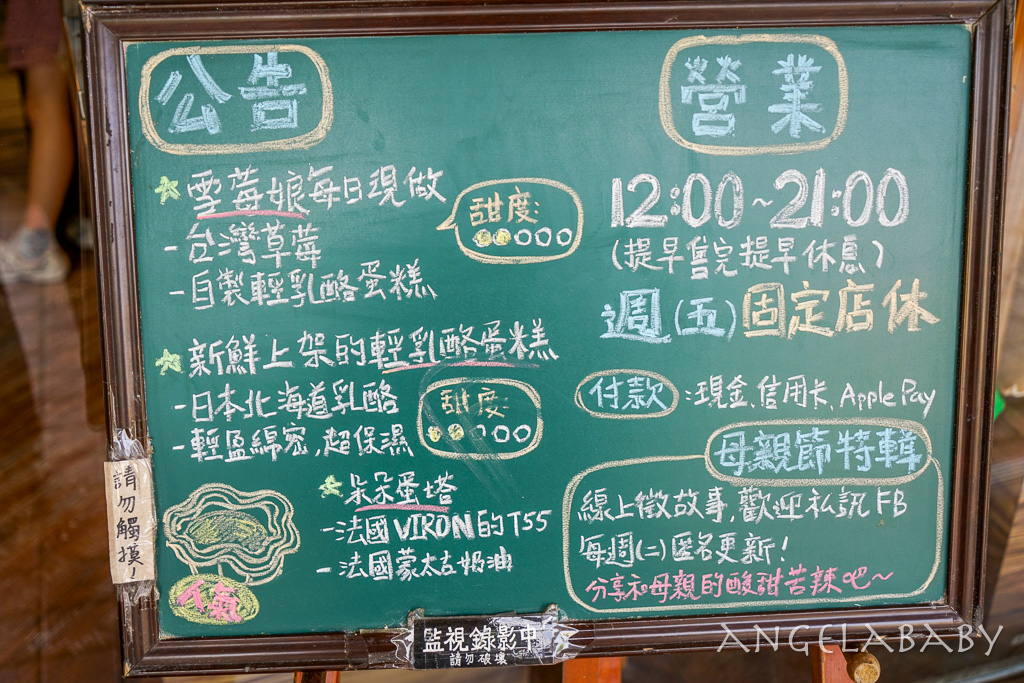 公告
雪莓娘每日現做
甜度:
-台灣草莓
-自製輕乳酪蛋糕
新鮮上架的輕乳酪蛋糕
-日本北海道乳酪
甜度:
-輕盈綿密,超保濕
朵朵蛋塔
-法國VIRON的T55
-法國蒙太吉奶油
人氣
請勿觸摸!
營業
12:00~21:00
(提早售完提早休息)
週(五)固定店休
付款:現金、信用卡、Apple Pay
母親節特輯
線上徵故事,歡迎私訊FB
每週(二)匿名更新!
分享和母親的酸甜苦辣吧~
監視錄影中
請勿破壞
ANGELABABY